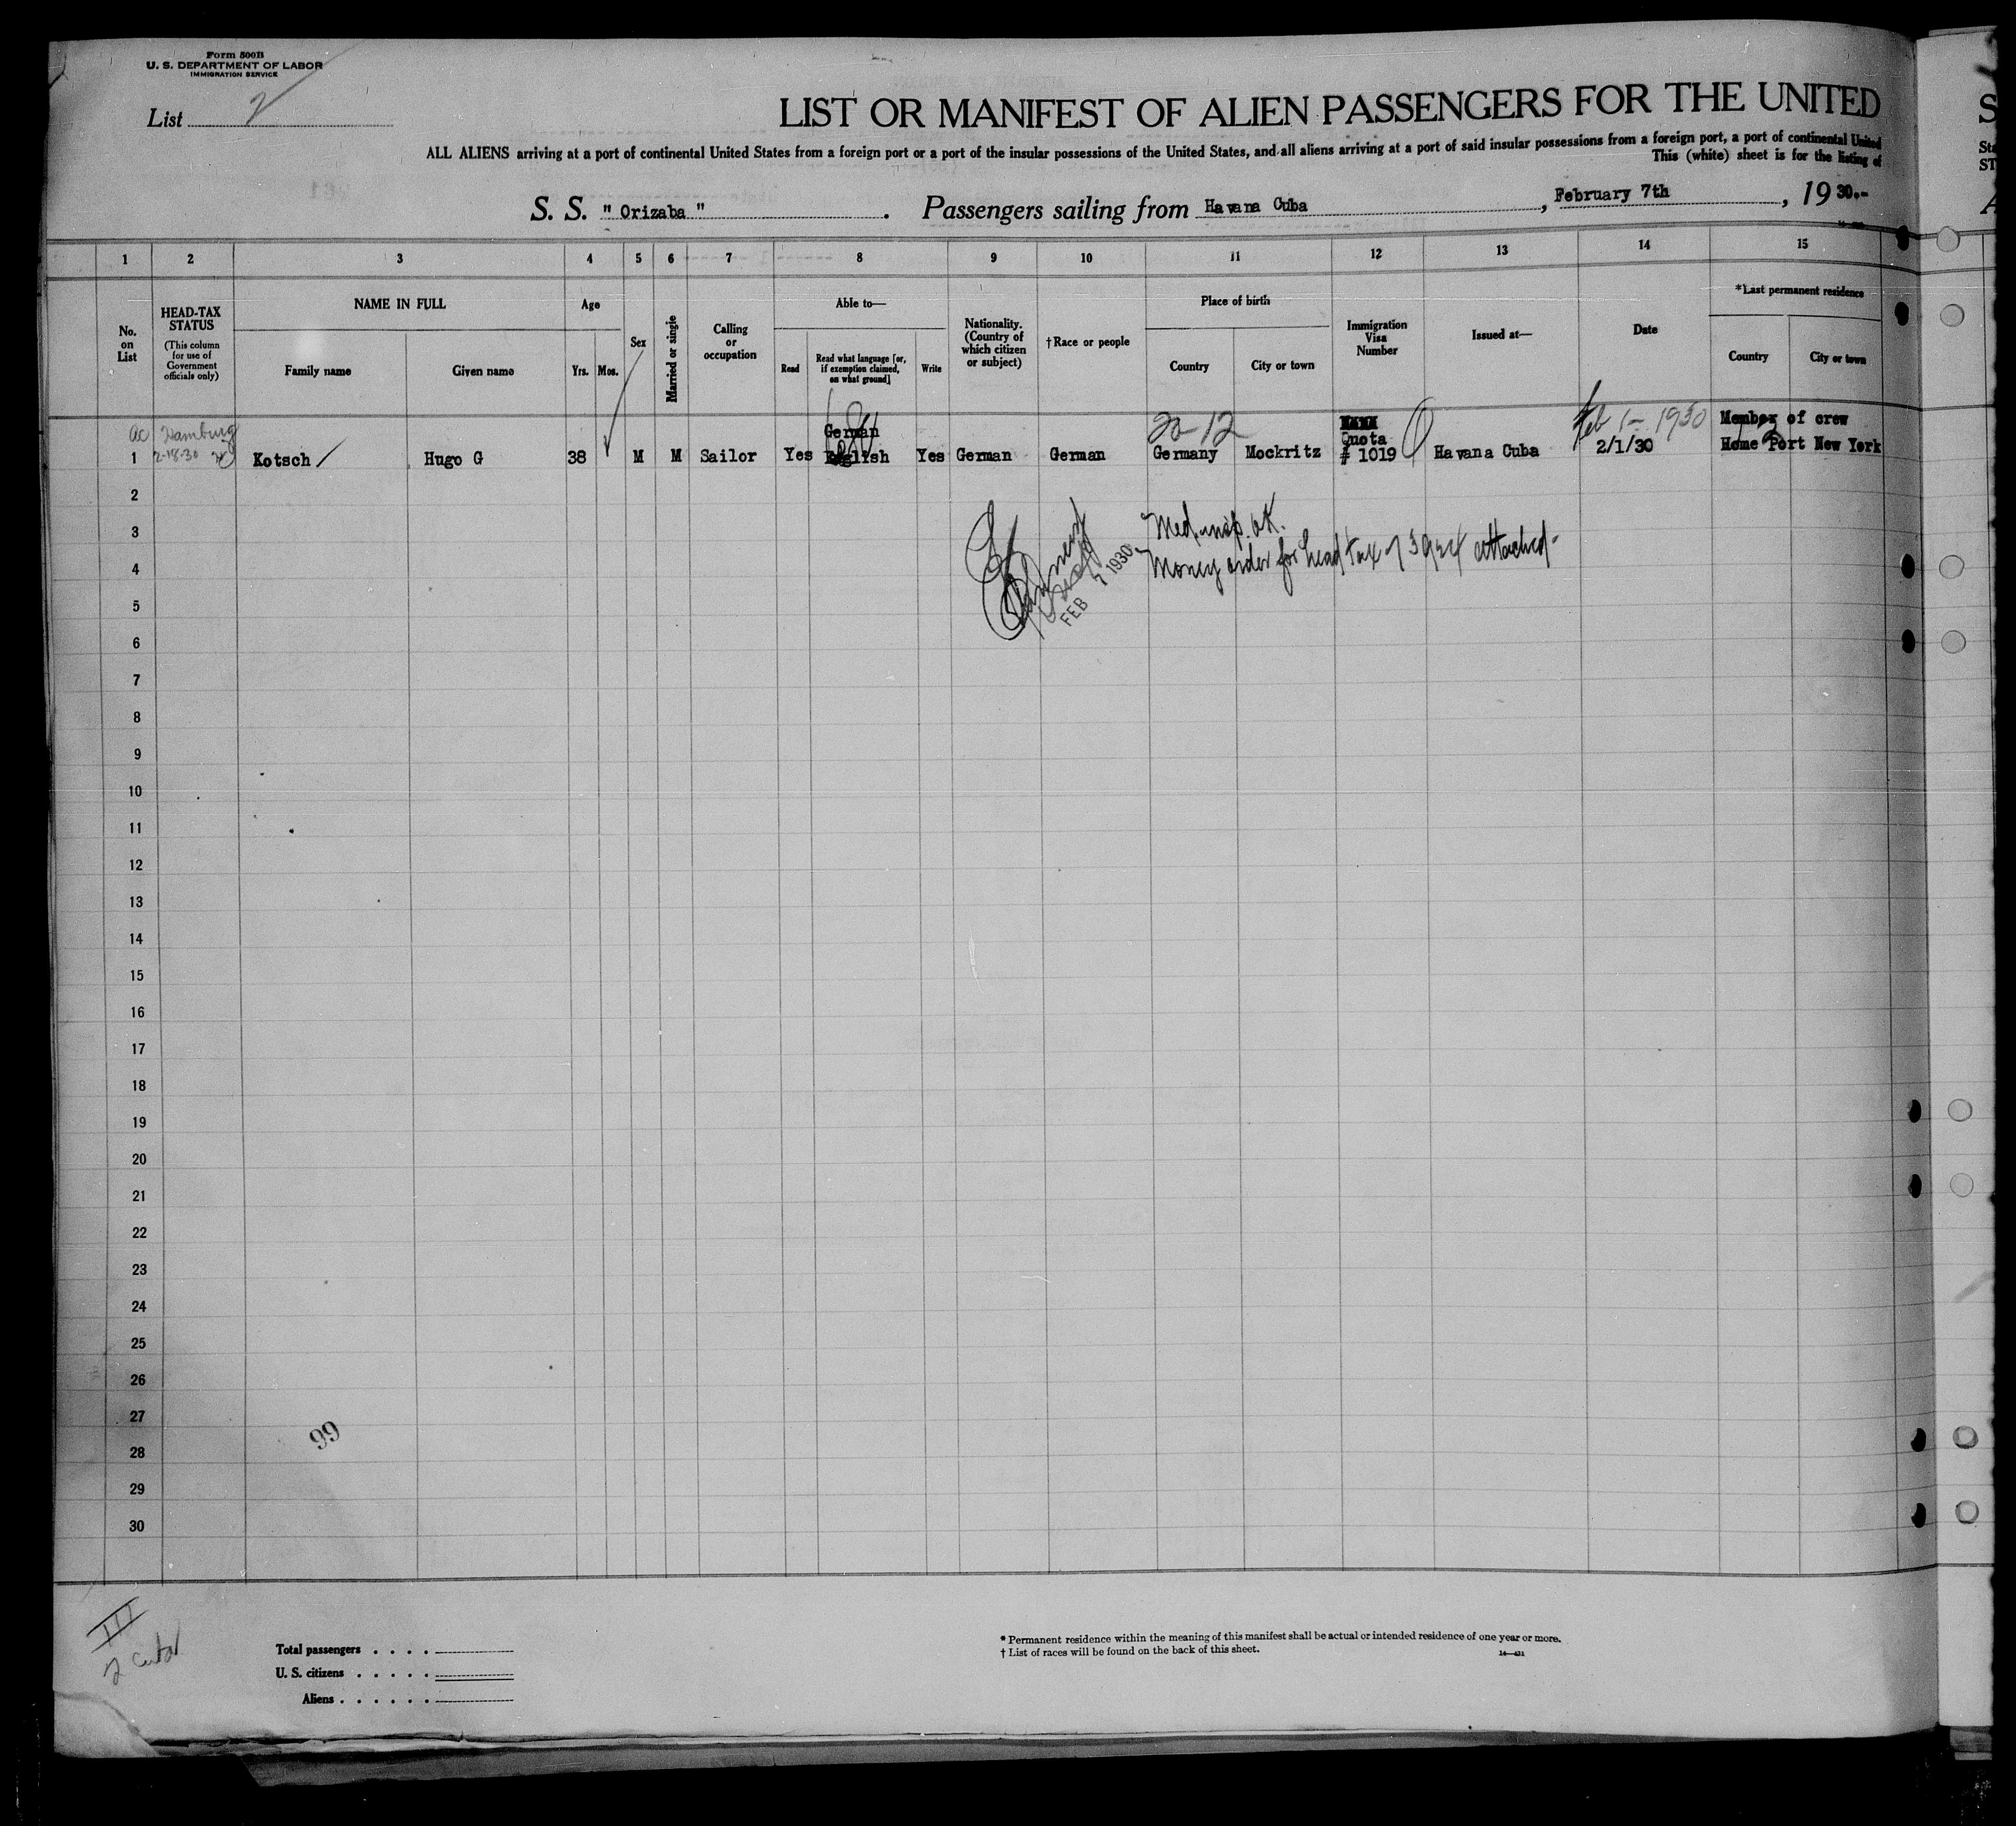 Form 500B
U. S. DEPARTMENT OF LABOR
IMMIGRATION SERVICE
List 2
LIST OR MANIFEST OF ALIEN PASSENGERS FOR THE UNITED
ALL ALIENS arriving at a port of continental United States from a foreign port or a port of the insular possessions of the United States, and all aliens arriving at a port of said insular possessions from a foreign port, a port of continental United
This (white) sheet is for the listing of
S. S. " Orizaba " . Passengers sailing from Havana Cuba , February 7th , 19 30.-
1 2 3 4 5 6 7 8 9 10 11 12 13 14 15
No. on List
HEAD-TAX STATUS
(This column for use of Government officials only)
NAME IN FULL
Family name
Given name
Age
Yrs. Mos.
Sex
Married or single
Calling or occupation
Able to—
Read
Read what language [or, if exemption claimed, on what ground]
Write
Nationality. (Country of which citizen or subject)
†Race or people
Place of birth
Country
City or town
Immigration Visa Number
Issued at—
Date
*Last permanent residence
Country
City or town
Hamburg German 20-12 Quota Feb 1- 1930 Member of crew
1 2-18-30 Kotsch Hugo G 38 M M Sailor Yes English Yes German German Germany Mockritz # 1019 Havana Cuba 2/1/30 Home Port New York
2
3 Med. insp. ok.
4 FEB 7 1930 Money order for head tax attached-
5
6
7
8
9
10
11
12
13
14
15
16
17
18
19
20
21
22
23
24
25
26
27
99
28
29
30
III
Total passengers . . . .
U. S. citizens . . . . .
Aliens . . . . . .
* Permanent residence within the meaning of this manifest shall be actual or intended residence of one year or more.
† List of races will be found on the back of this sheet.